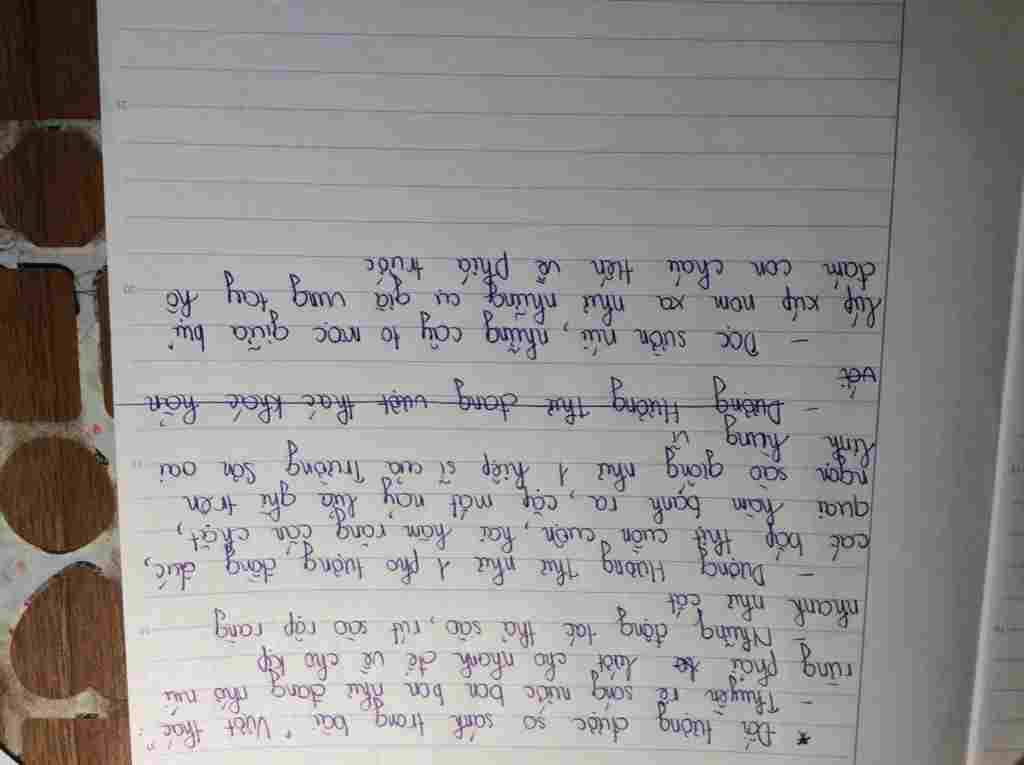 * Đối tượng được so sánh trong bài "Vượt thác".
- Thuyền rẽ sóng nước bon bon như đang nhớ núi
rừng phải lướt cho nhanh để về cho kịp
- Những động tác thả sào, rút sào rập ràng
nhanh như cắt
- Dượng Hương Thư như 1 pho tượng đồng đúc,
các bắp thịt cuồn cuộn, hai hàm răng cắn chặt,
quai hàm bạnh ra, cặp mắt nảy lửa ghì trên
ngọn sào giống như 1 hiệp sĩ của Trường Sơn oai
linh hùng vĩ
- Dượng Hương Thư đang vượt thác khác hẳn
với
- Dọc sườn núi, những cây to mọc giữa bụi
lúp xúp nom xa như những cụ già vung tay hô
đám con cháu tiến về phía trước